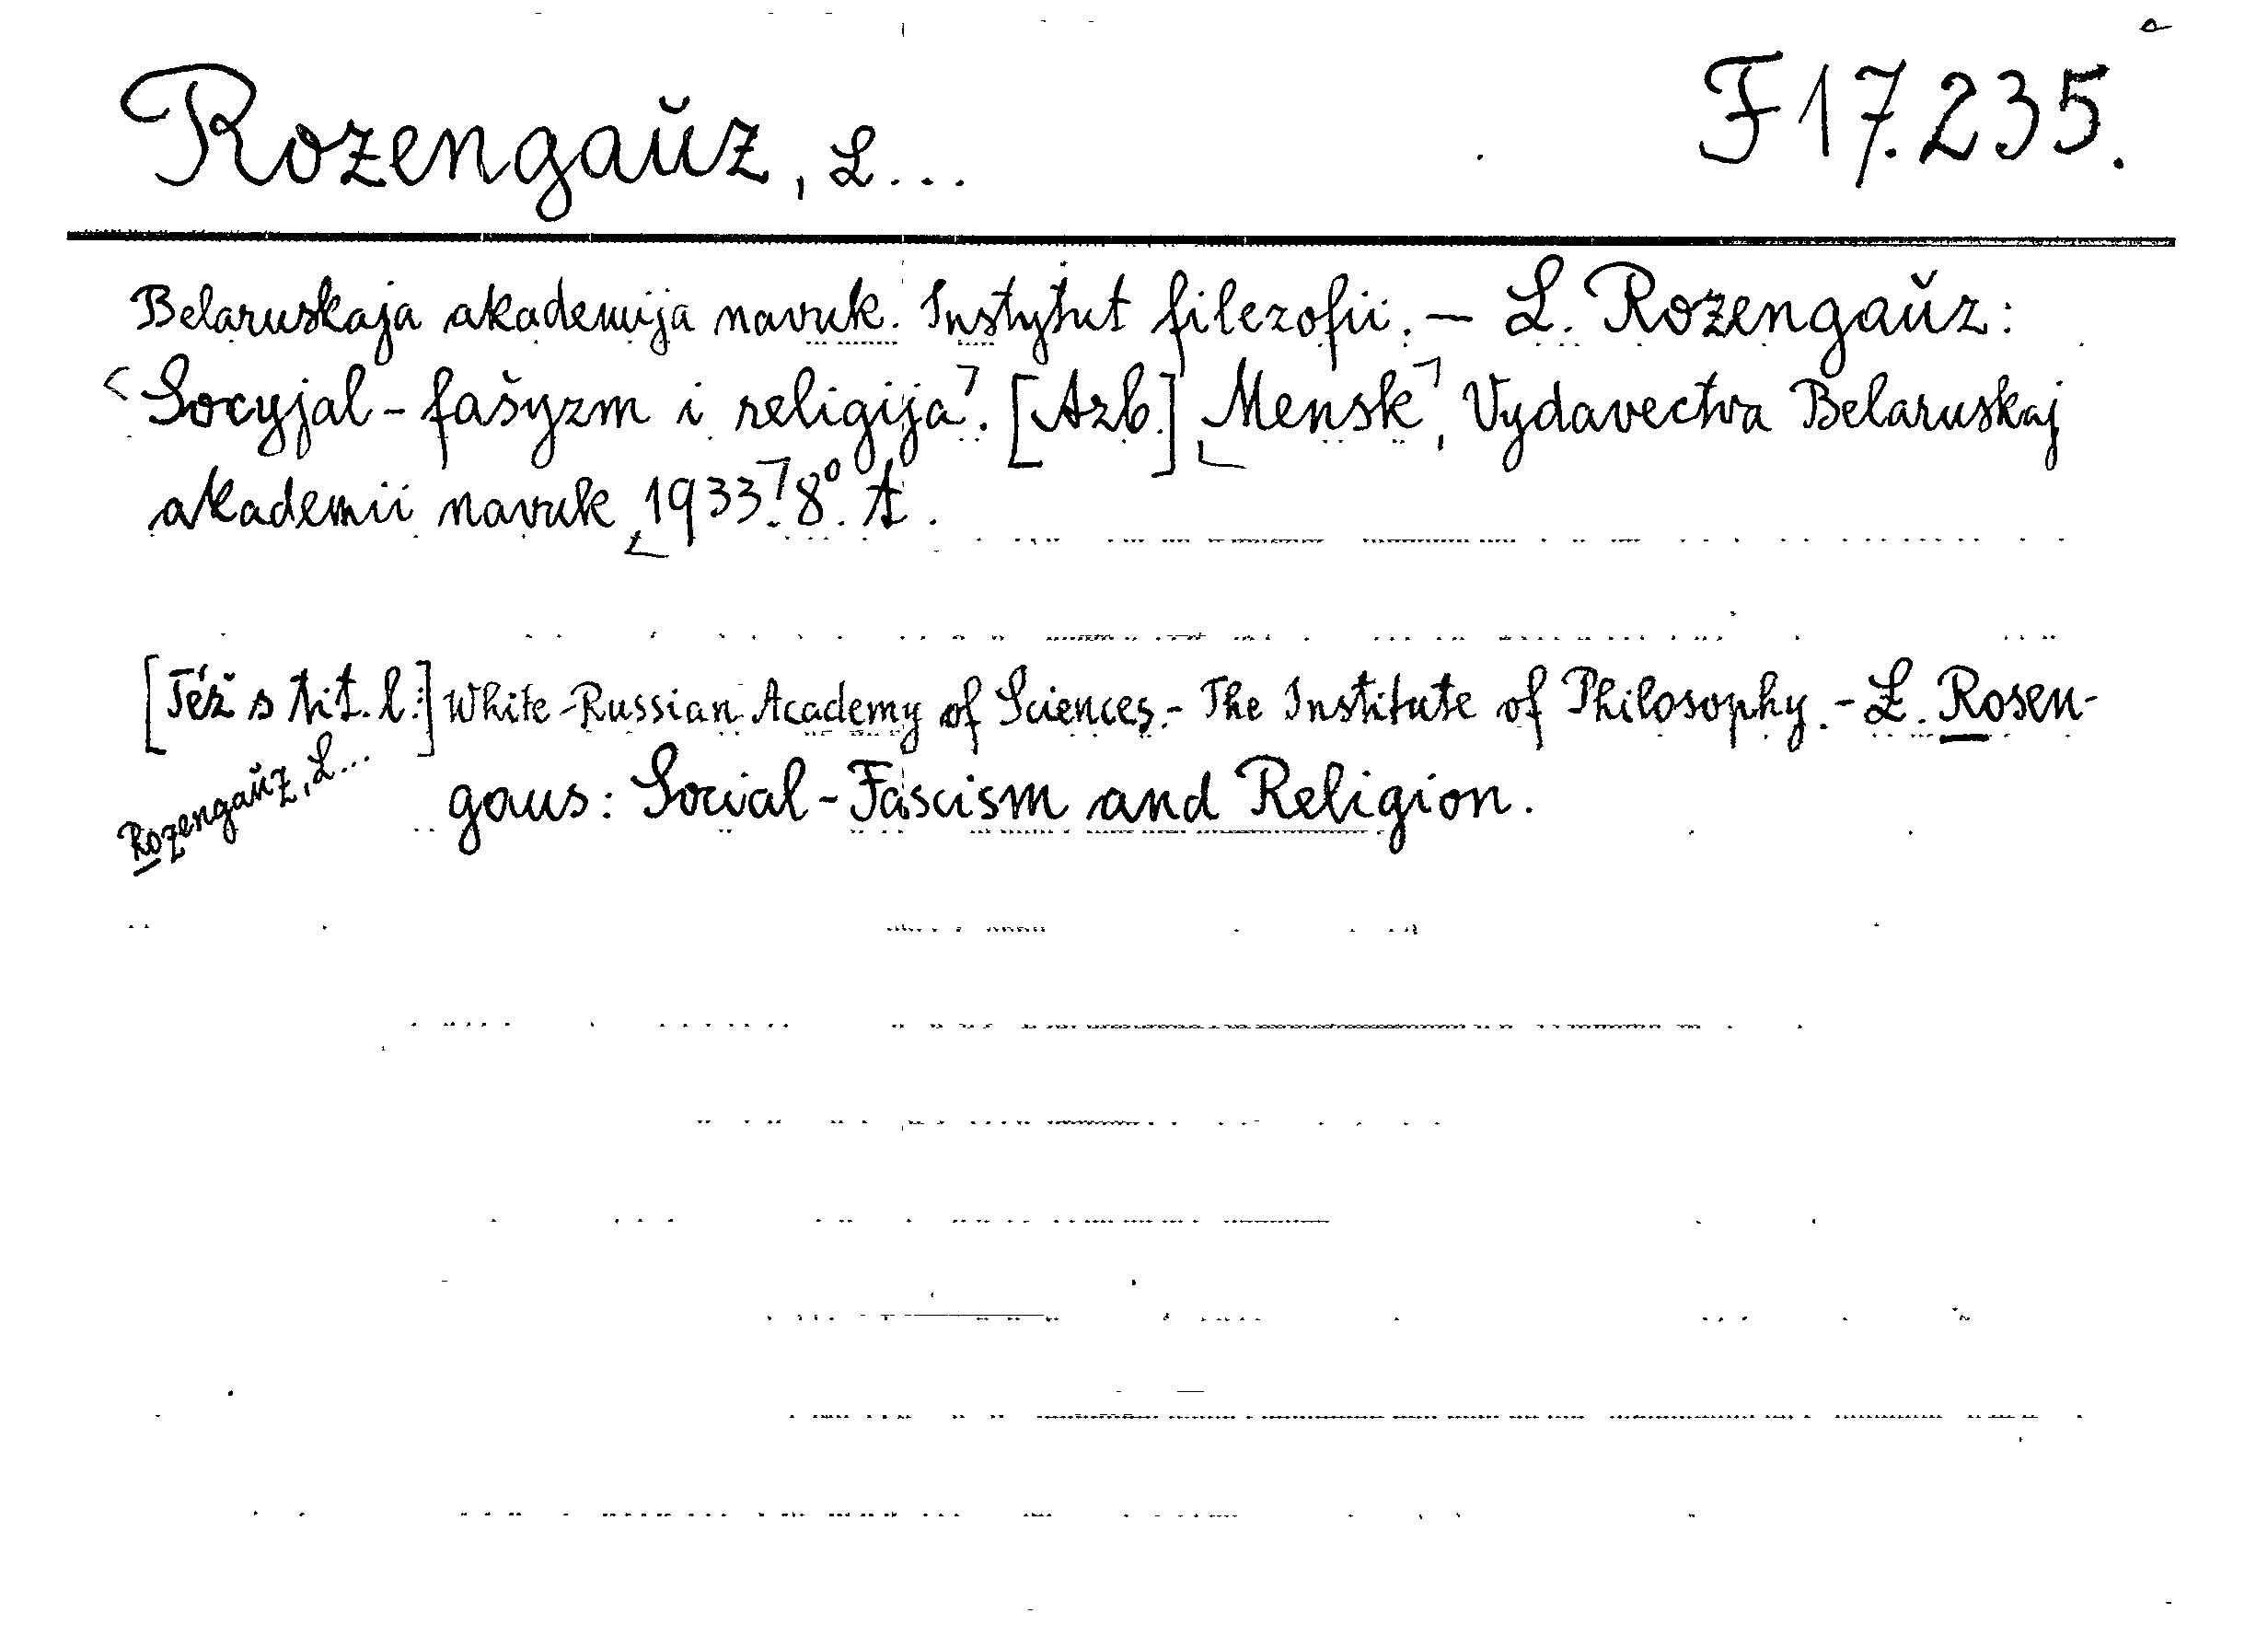 Rozengaŭz, L... F 17.235.
Belaruskaja akademija navuk. Instytut filezofii. — L. Rozengaŭz:
Socyjal-fašyzm i religija. [Azb.] Mensk, Vydavectva Belaruskaj
akademii navuk 1933. 8°. A.
[Též s tit. l.:] White-Russian Academy of Sciences.- The Institute of Philosophy.- L. Rosen-
gaus: Social-Fascism and Religion.
Rozengaŭz, L...